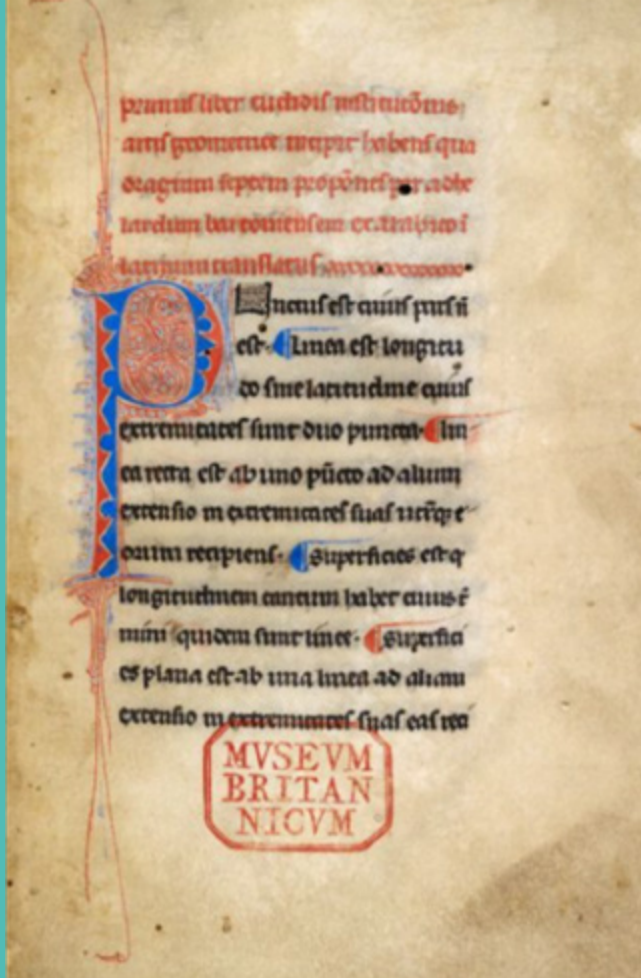 primus liber euclidis institucōnis
artis geometrice incipit habens qua
draginta septem propōnes per adhe
lardum batoniensem ex arabico ĩ
latinum translatus
Punctus est cuius pars ñ
est. Linea est longitu
do sine latitudine cuius
extremitates sunt duo puncta. lin
ea recta est ab uno pūcto ad alium
extensio in extremitates suas utrūqꝫ e
orum recipiens. Superficies est q̄
longitudinem tantum habet cuius t̄
mini quidem sunt linee. Superfici
es plana est ab una linea ad aliam
extensio in extremitates suas eas reci
MVSEVM
BRITAN
NICVM